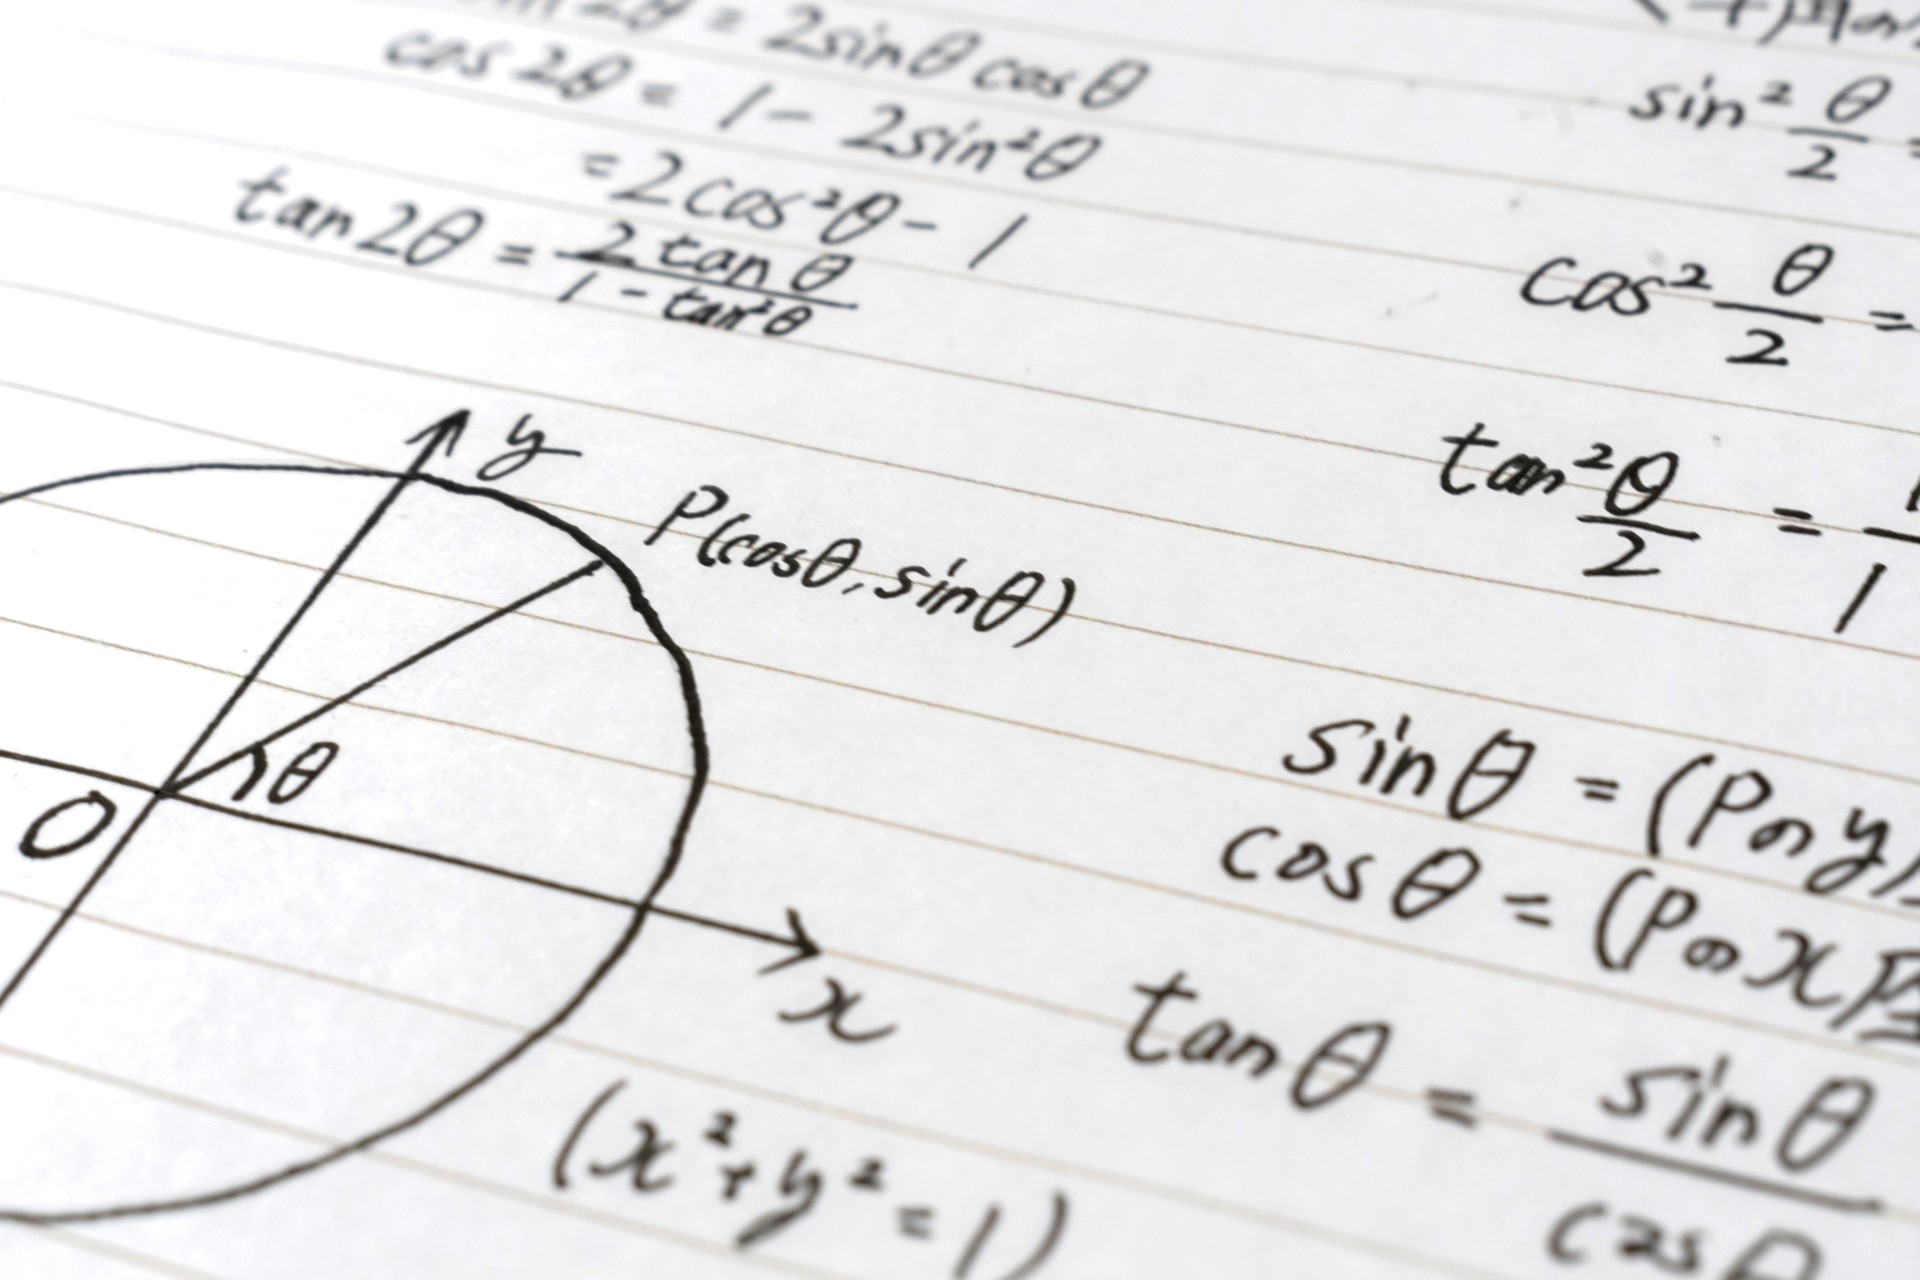 sin2θ = 2sinθcosθ
cos2θ = 1 - 2sin²θ
= 2cos²θ - 1
tan2θ = 2tanθ / 1 - tan²θ
sin² θ/2 =
cos² θ/2 =
tan² θ/2 =
1
y
P(cosθ, sinθ)
θ
O
x
(x² + y² = 1)
sinθ = (Pのy
cosθ = (Pのx座
tanθ = sinθ / cosθ